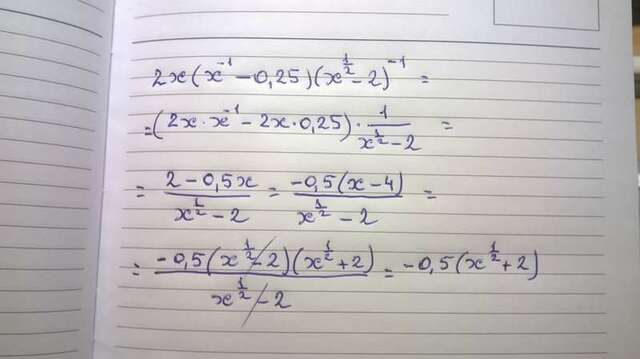 2x(x⁻¹ − 0,25)(x^{1/2} − 2)⁻¹ =
= (2x · x⁻¹ − 2x · 0,25) · \frac{1}{x^{1/2} − 2} =
= \frac{2 − 0,5x}{x^{1/2} − 2} = \frac{−0,5(x − 4)}{x^{1/2} − 2} =
= \frac{−0,5(x^{1/2} − 2)(x^{1/2} + 2)}{x^{1/2} − 2} = −0,5(x^{1/2} + 2)